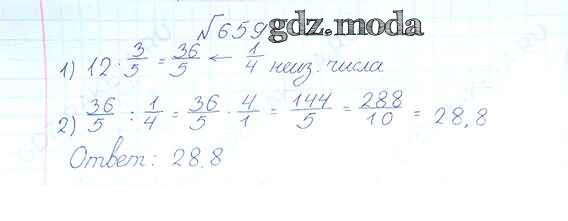 №659 gdz.moda
1) 12 · 3/5 = 36/5 ← 1/4 неиз. числа
2) 36/5 : 1/4 = 36/5 · 4/1 = 144/5 = 288/10 = 28,8
Ответ: 28,8